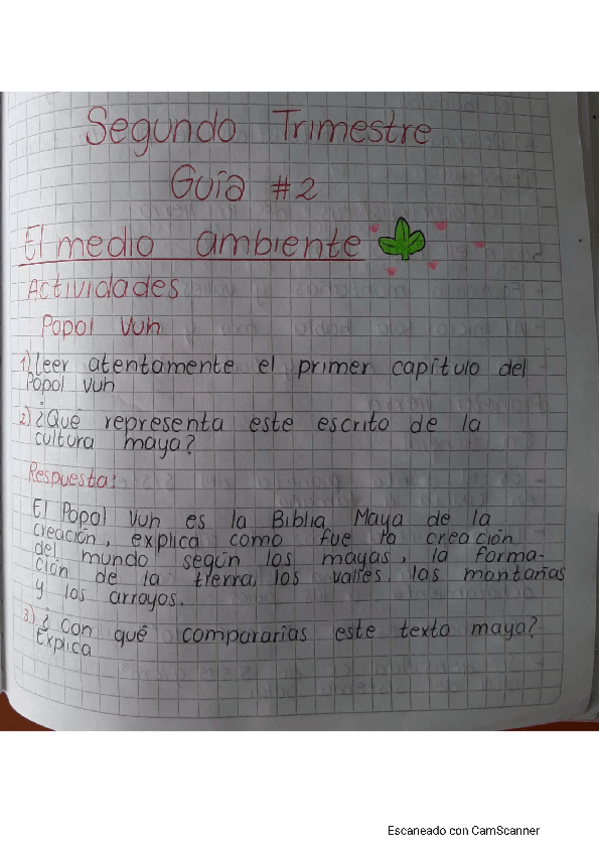 Segundo Trimestre
Guía #2
El medio ambiente
Actividades
Popol Vuh
1) Leer atentamente el primer capítulo del
Popol vuh
2) ¿Qué representa este escrito de la
cultura maya?
Respuesta:
El Popol Vuh es la Biblia Maya de la
creación, explica como fue la creación
del mundo según los mayas, la forma-
ción de la tierra, los valles, las montañas
y los arroyos.
3) ¿Con qué compararías este texto maya?
Explica
Escaneado con CamScanner